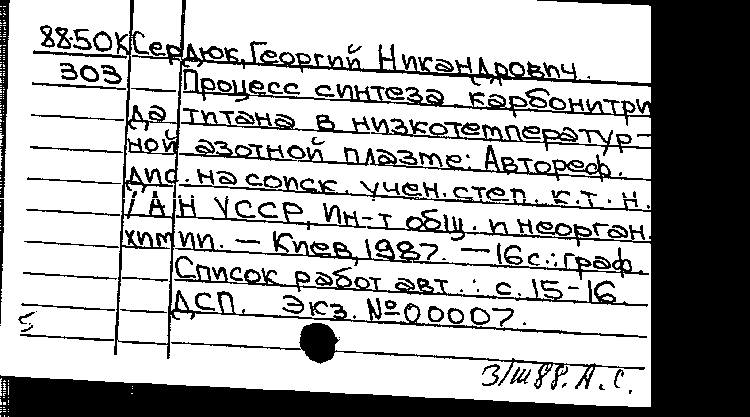 88-50К Сердюк, Георгий Никандрович.
303 Процесс синтеза карбонитри
да титана в низкотемператур-
ной азотной плазме: Автореф.
дис. на соиск. учен. степ. к. т. н.
/ АН УССР, Ин-т общ. и неорган.
химии. — Киев, 1987. — 16 с.: граф.
Список работ авт.: с. 15-16.
ДСП. Экз. №00007.
3/III 88. А. С.